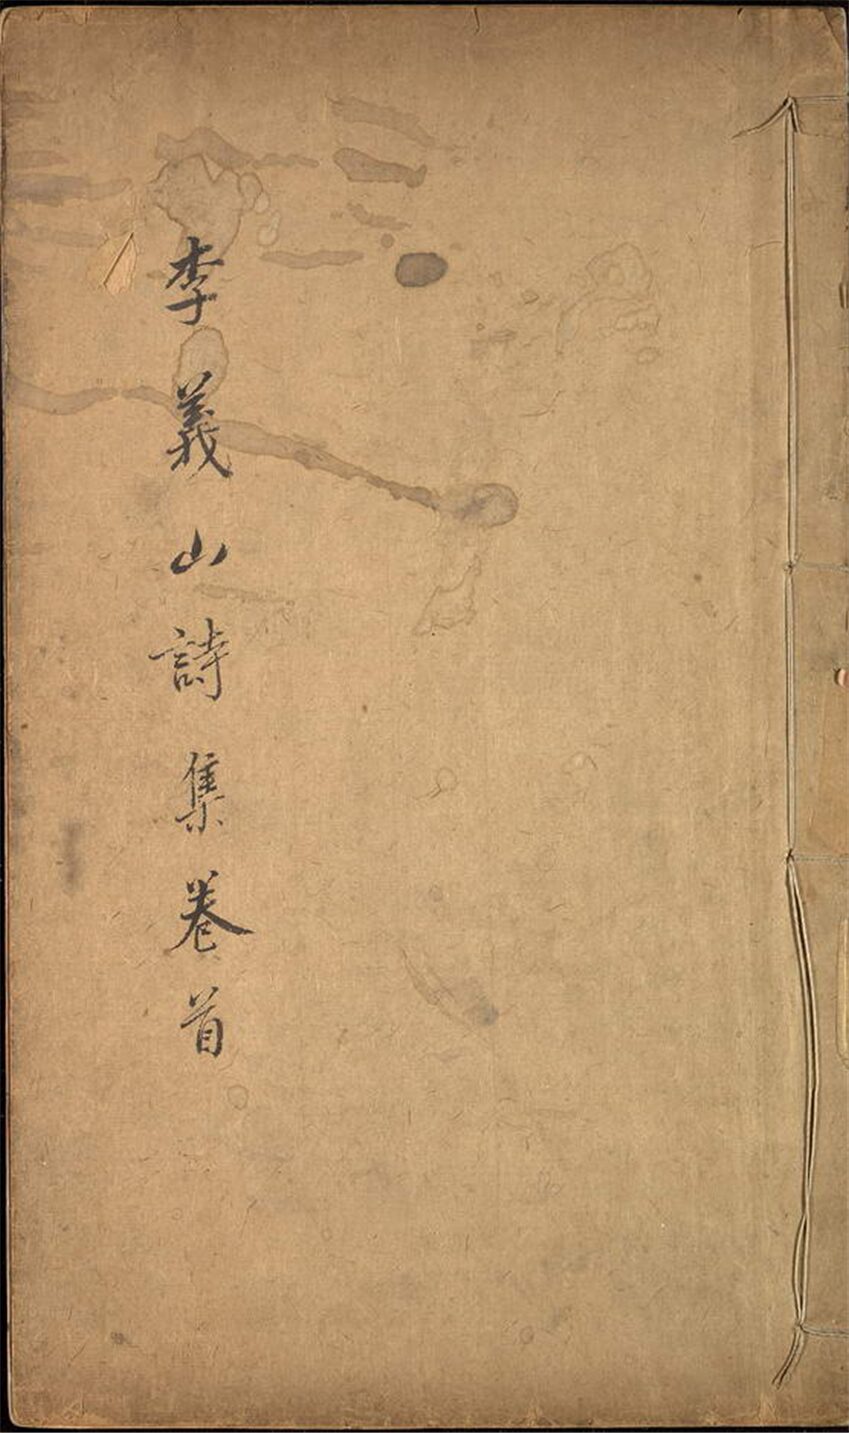 李義山詩集卷首